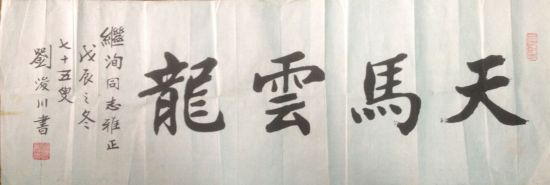 天馬雲龍
繼洵同志雅正
戊辰之冬
七十五叟
劉浚川書